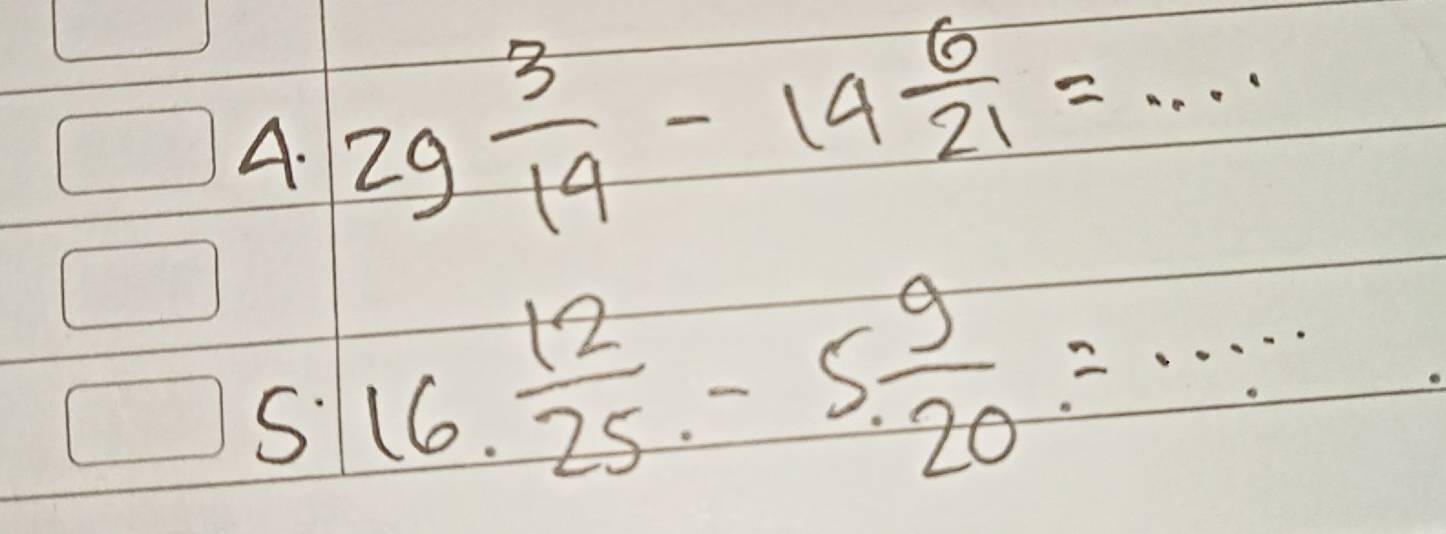 4. 29 3/14 - 14 6/21 = .....
5. 16. 12/25. - 5. 9/20. = .......